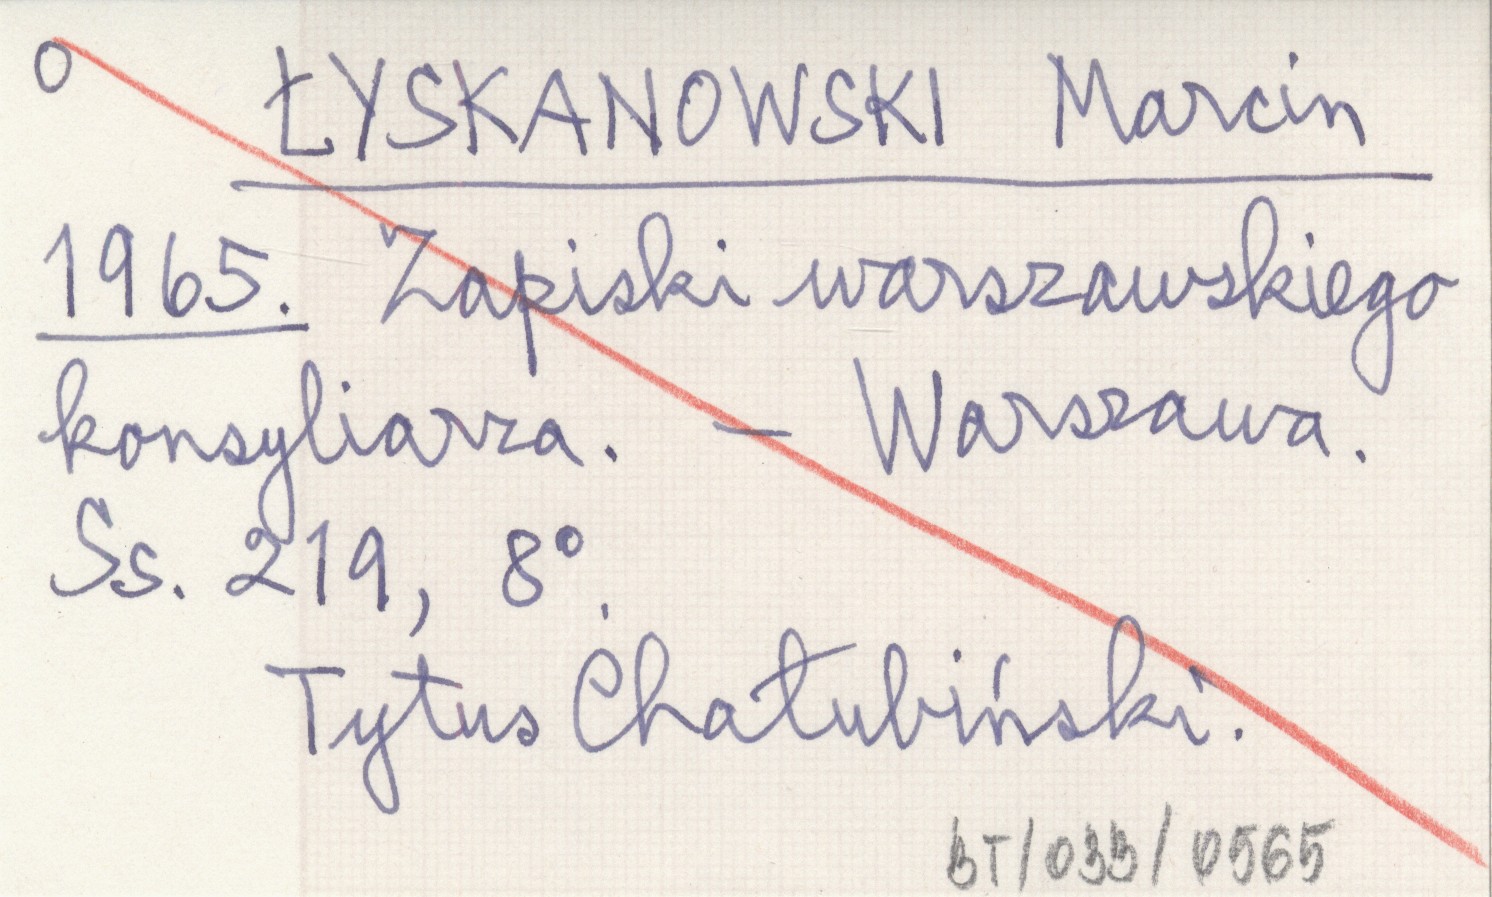 O ŁYSKANOWSKI Marcin
1965. Zapiski warszawskiego
konsyliarza. – Warszawa.
Ss. 219, 8°.
Tytus Chałubiński.
BT/033/0565